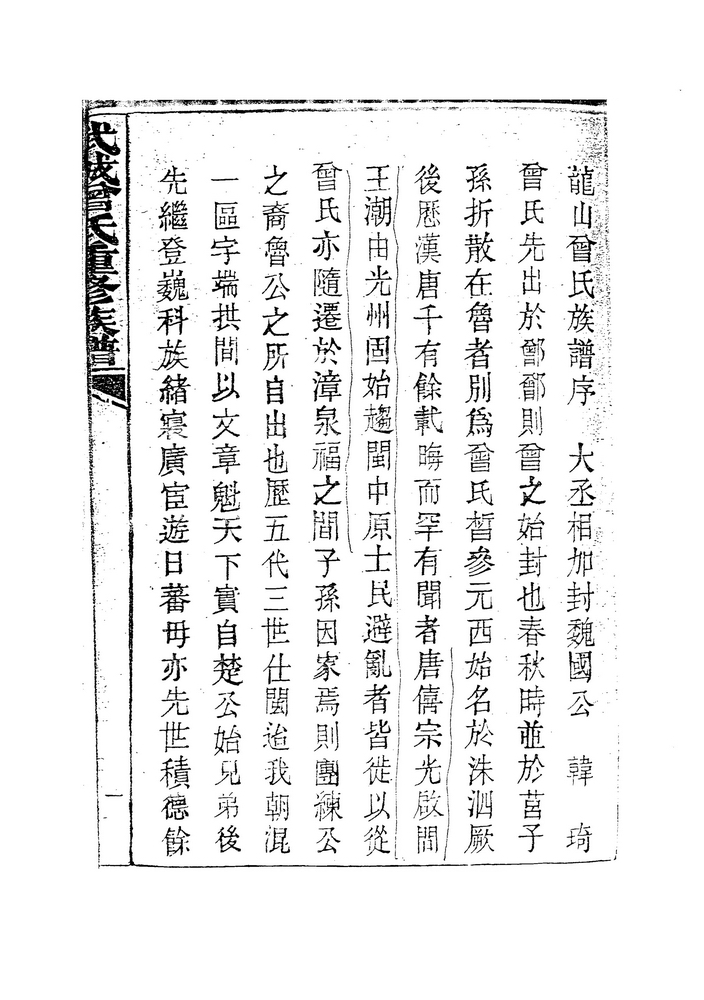 龍山曾氏族譜序　大丞相加封魏國公　韓　琦
曾氏先出於鄫鄫則曾之始封也春秋時並於莒子
孫折散在魯者別爲曾氏晳參元西始名於洙泗厥
後歷漢唐千有餘載晦而罕有聞者唐僖宗光啟間
王潮由光州固始趨閩中原士民避亂者皆徙以從
曾氏亦隨遷於漳泉福之間子孫因家焉則團練公
之裔魯公之所自出也歷五代三世仕閩迨我朝混
一區宇端拱間以文章魁天下實自楚公始兄弟後
先繼登巍科族緒寖廣宦遊日蕃毋亦先世積德餘
武城曾氏重修族譜
一